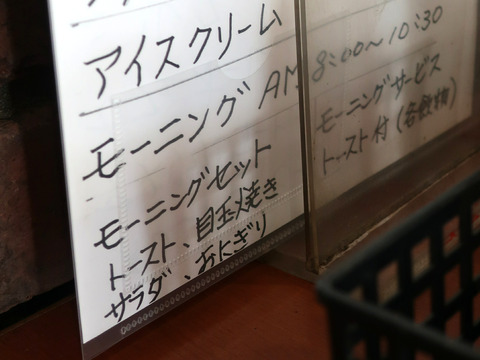 アイスクリーム
モーニング AM 8:00〜10:30
モーニングサービス
トースト付(各飲物)
モーニングセット
トースト、目玉焼き
サラダ、おにぎり